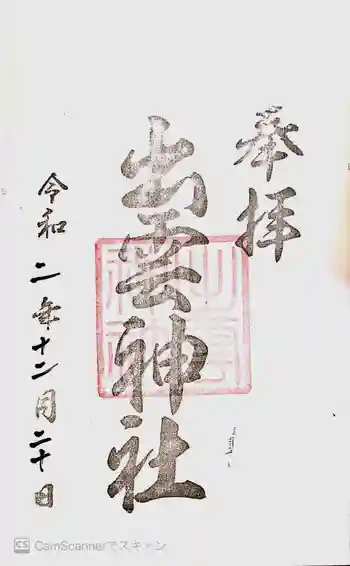 奉拝
出雲神社
令和二年十二月二十日
CS CamScannerでスキャン